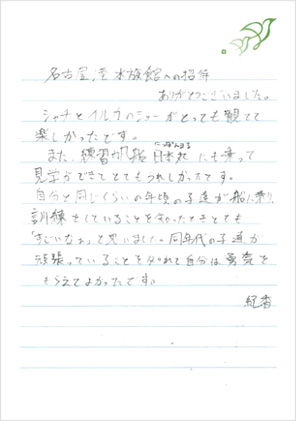 名古屋港水族館への招待
ありがとうございました。
シャチとイルカのショーがとっても観てて
楽しかったです。
また、練習帆船 日本丸にも乗って
にっぽんまる
見学ができてとてもうれしかったです。
自分と同じくらいの年頃の子達が船に乗り、
訓練をしていることを知ったときとても
「すごいなぁ」と思いました。同年代の子達が
頑張っていることを知れて自分は勇気を
もらえてよかったです。
紀香